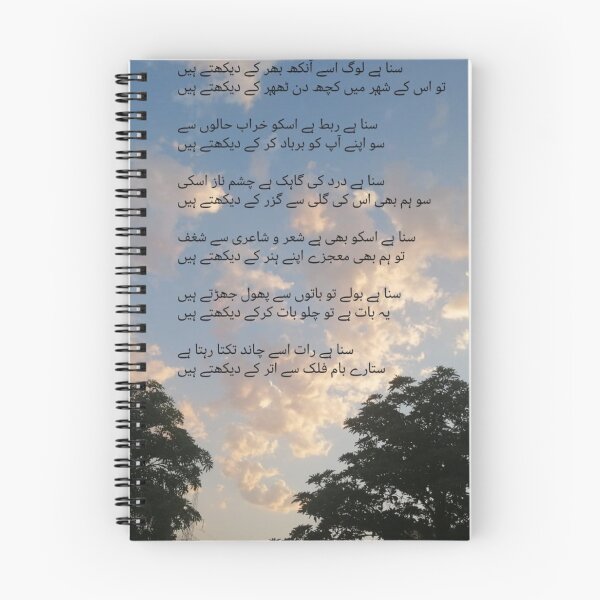 سنا ہے لوگ اسے آنکھ بھر کے دیکھتے ہیں
تو اس کے شہر میں کچھ دن ٹھہر کے دیکھتے ہیں
سنا ہے ربط ہے اسکو خراب حالوں سے
سو اپنے آپ کو برباد کر کے دیکھتے ہیں
سنا ہے درد کی گاہک ہے چشم ناز اسکی
سو ہم بھی اس کی گلی سے گزر کے دیکھتے ہیں
سنا ہے اسکو بھی ہے شعر و شاعری سے شغف
تو ہم بھی معجزے اپنے ہنر کے دیکھتے ہیں
سنا ہے بولے تو باتوں سے پھول جھڑتے ہیں
یہ بات ہے تو چلو بات کرکے دیکھتے ہیں
سنا ہے رات اسے چاند تکتا رہتا ہے
ستارے بام فلک سے اتر کے دیکھتے ہیں